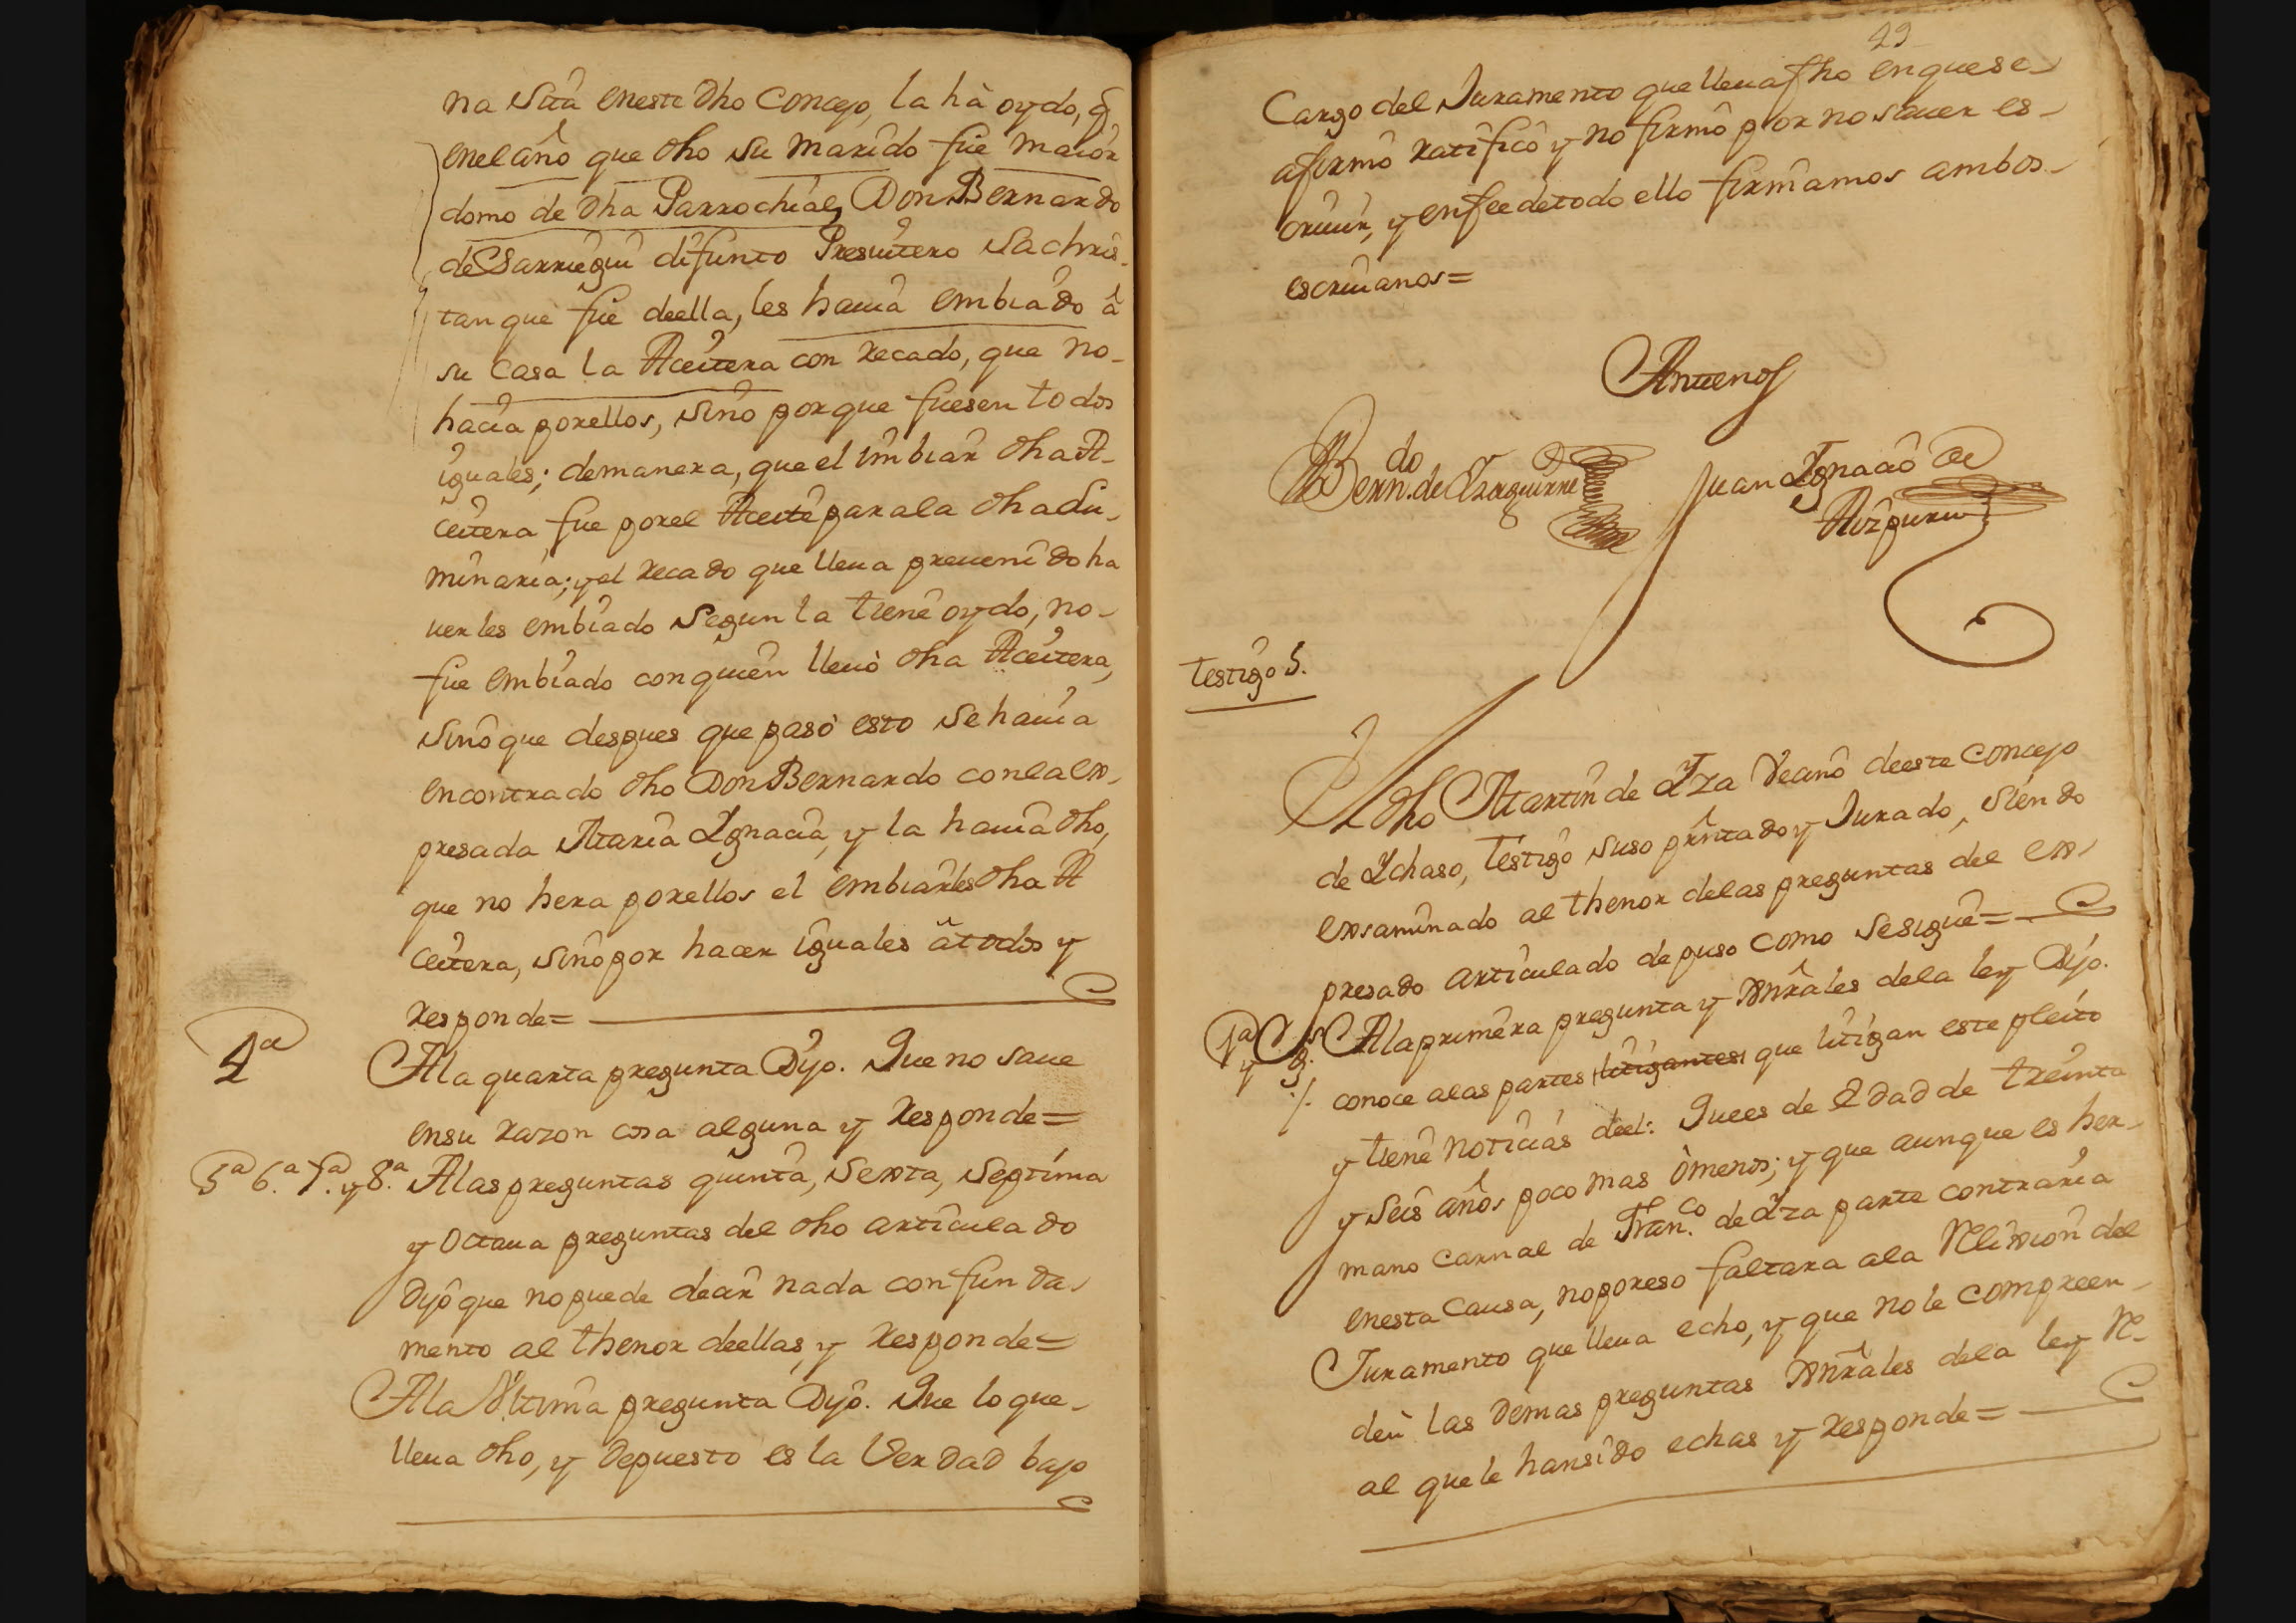 na sita en este dho Concejo, la hà oydo, q̃
en el año que dho su marido fue maior
domo de dha Parrochial, Don Bernardo
de Sarriegui difunto Presuitero Sachris-
tan que fue de ella, les hauia embiado â
su casa la Aceitera con recado, que no-
hacia por ellos, sino porque fuesen todos
iguales; de manera, que el imbiar dha A-
ceitera fue por el Aceite para la dha Lu-
minaria; y el recado que lleua preuenido ha
uerles embiado segun la tiene oydo, no-
fue embiado con quien lleuò dha Aceitera,
sino que despues que pasò esto se hauia
encontrado dho Don Bernardo con la ex-
presada Maria Ignacia, y la hauia dho,
que no hera por ellos el embiarles dha A
ceitera, sino por hacer iguales â todos y
responde=
4ª
A la quarta pregunta Dijo. Que no saue
en su razon cosa alguna y responde=
5ª 6.ª 7.ª y 8.ª A las preguntas quinta, sexta, septima
y octaua preguntas del dho articulado
dijo que no puede decir nada con funda-
mento al thenor de ellas, y responde=
A la Vltima pregunta Dijo. Que lo que-
lleua dho, y depuesto es la Verdad bajo
49
Cargo del Juramento que lleua fho en que se-
afirmô ratificô y no firmô por no sauer es-
criuir, y en fee de todo ello firmamos ambos-
escriuanos=
Antenos
Bern.do de Yzaguirre
Juan Ygnacio de
Aizpuru
Testigo 5.
El dho Martin de Yza Vecino de este Concejo
de Ychaso, Testigo suso prêntado y Jurado, siendo
exsaminado al thenor de las preguntas del ex-
presado articulado depuso como se sigue=
1ª y Gs. A la primera pregunta y Gnrâles de la ley Dijo.
conoce a las partes litigantes que litigan este pleito
y tiene noticias deel: Quees de Edad de treinta
y seis años poco mas ômenos; y que aunque es her-
mano carnal de Fran.co de Yza parte contraria
en esta Causa, no por eso faltara a la Relixion del
Juramento que lleua echo, y que no le compreen-
den las demas preguntas Gnrâles de la ley Rl-
al que le han sido echas y responde=